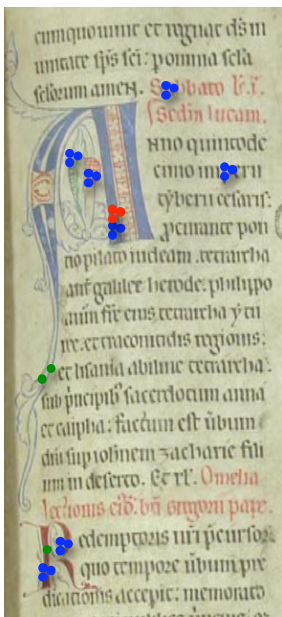 cumq uiuit et regnat ds in
unitate sps sci: p omnia scla
sclorum amen. Sabbato
Scdm lucam.
Anno quintode
cimo imperii
tyberii cesaris:
pcurante pon
tio pilato iudeam. tetrarcha
aut galilee herode. philippo
aum fre eius tetrarcha
re. et traconitidis regionis:
et lisania abiline tetrarcha.
sub pncipib sacerdotum anna
et caipha: factum est ubum
dni sup iohnem zacharie fili
um in deserto. Et rl. Omelia
lectionis
Redemptoris nri pcursor
quo tempore ubum pre
dicationis accepit: memorato